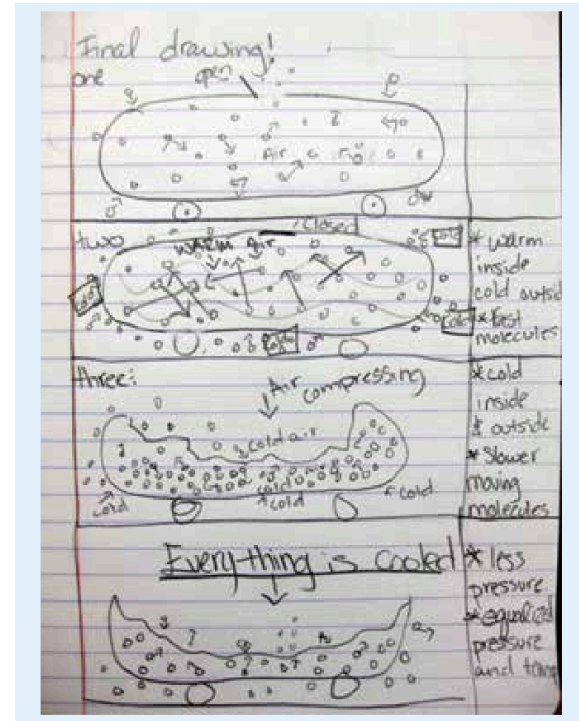 Final drawing!
one
open
Air
two
closed
warm air
cold
cold
cold
cold
* warm
inside
cold outsid
* fast
molecules
three:
Air
compressing
cold air
cold
cold
cold
cold
* cold
inside
& outside
* slower
moving
molecules
Everything is cooled
* less
pressure
* equalized
pressure
and temp